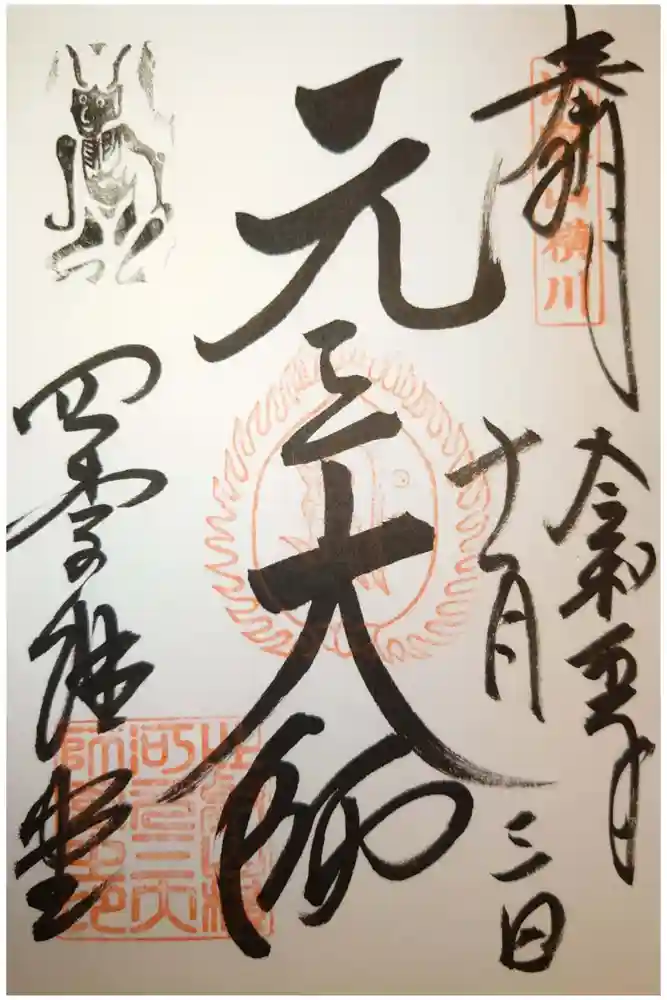 奉拝
比叡山横川
令和元年
十一月三日
元三大師
四季講堂